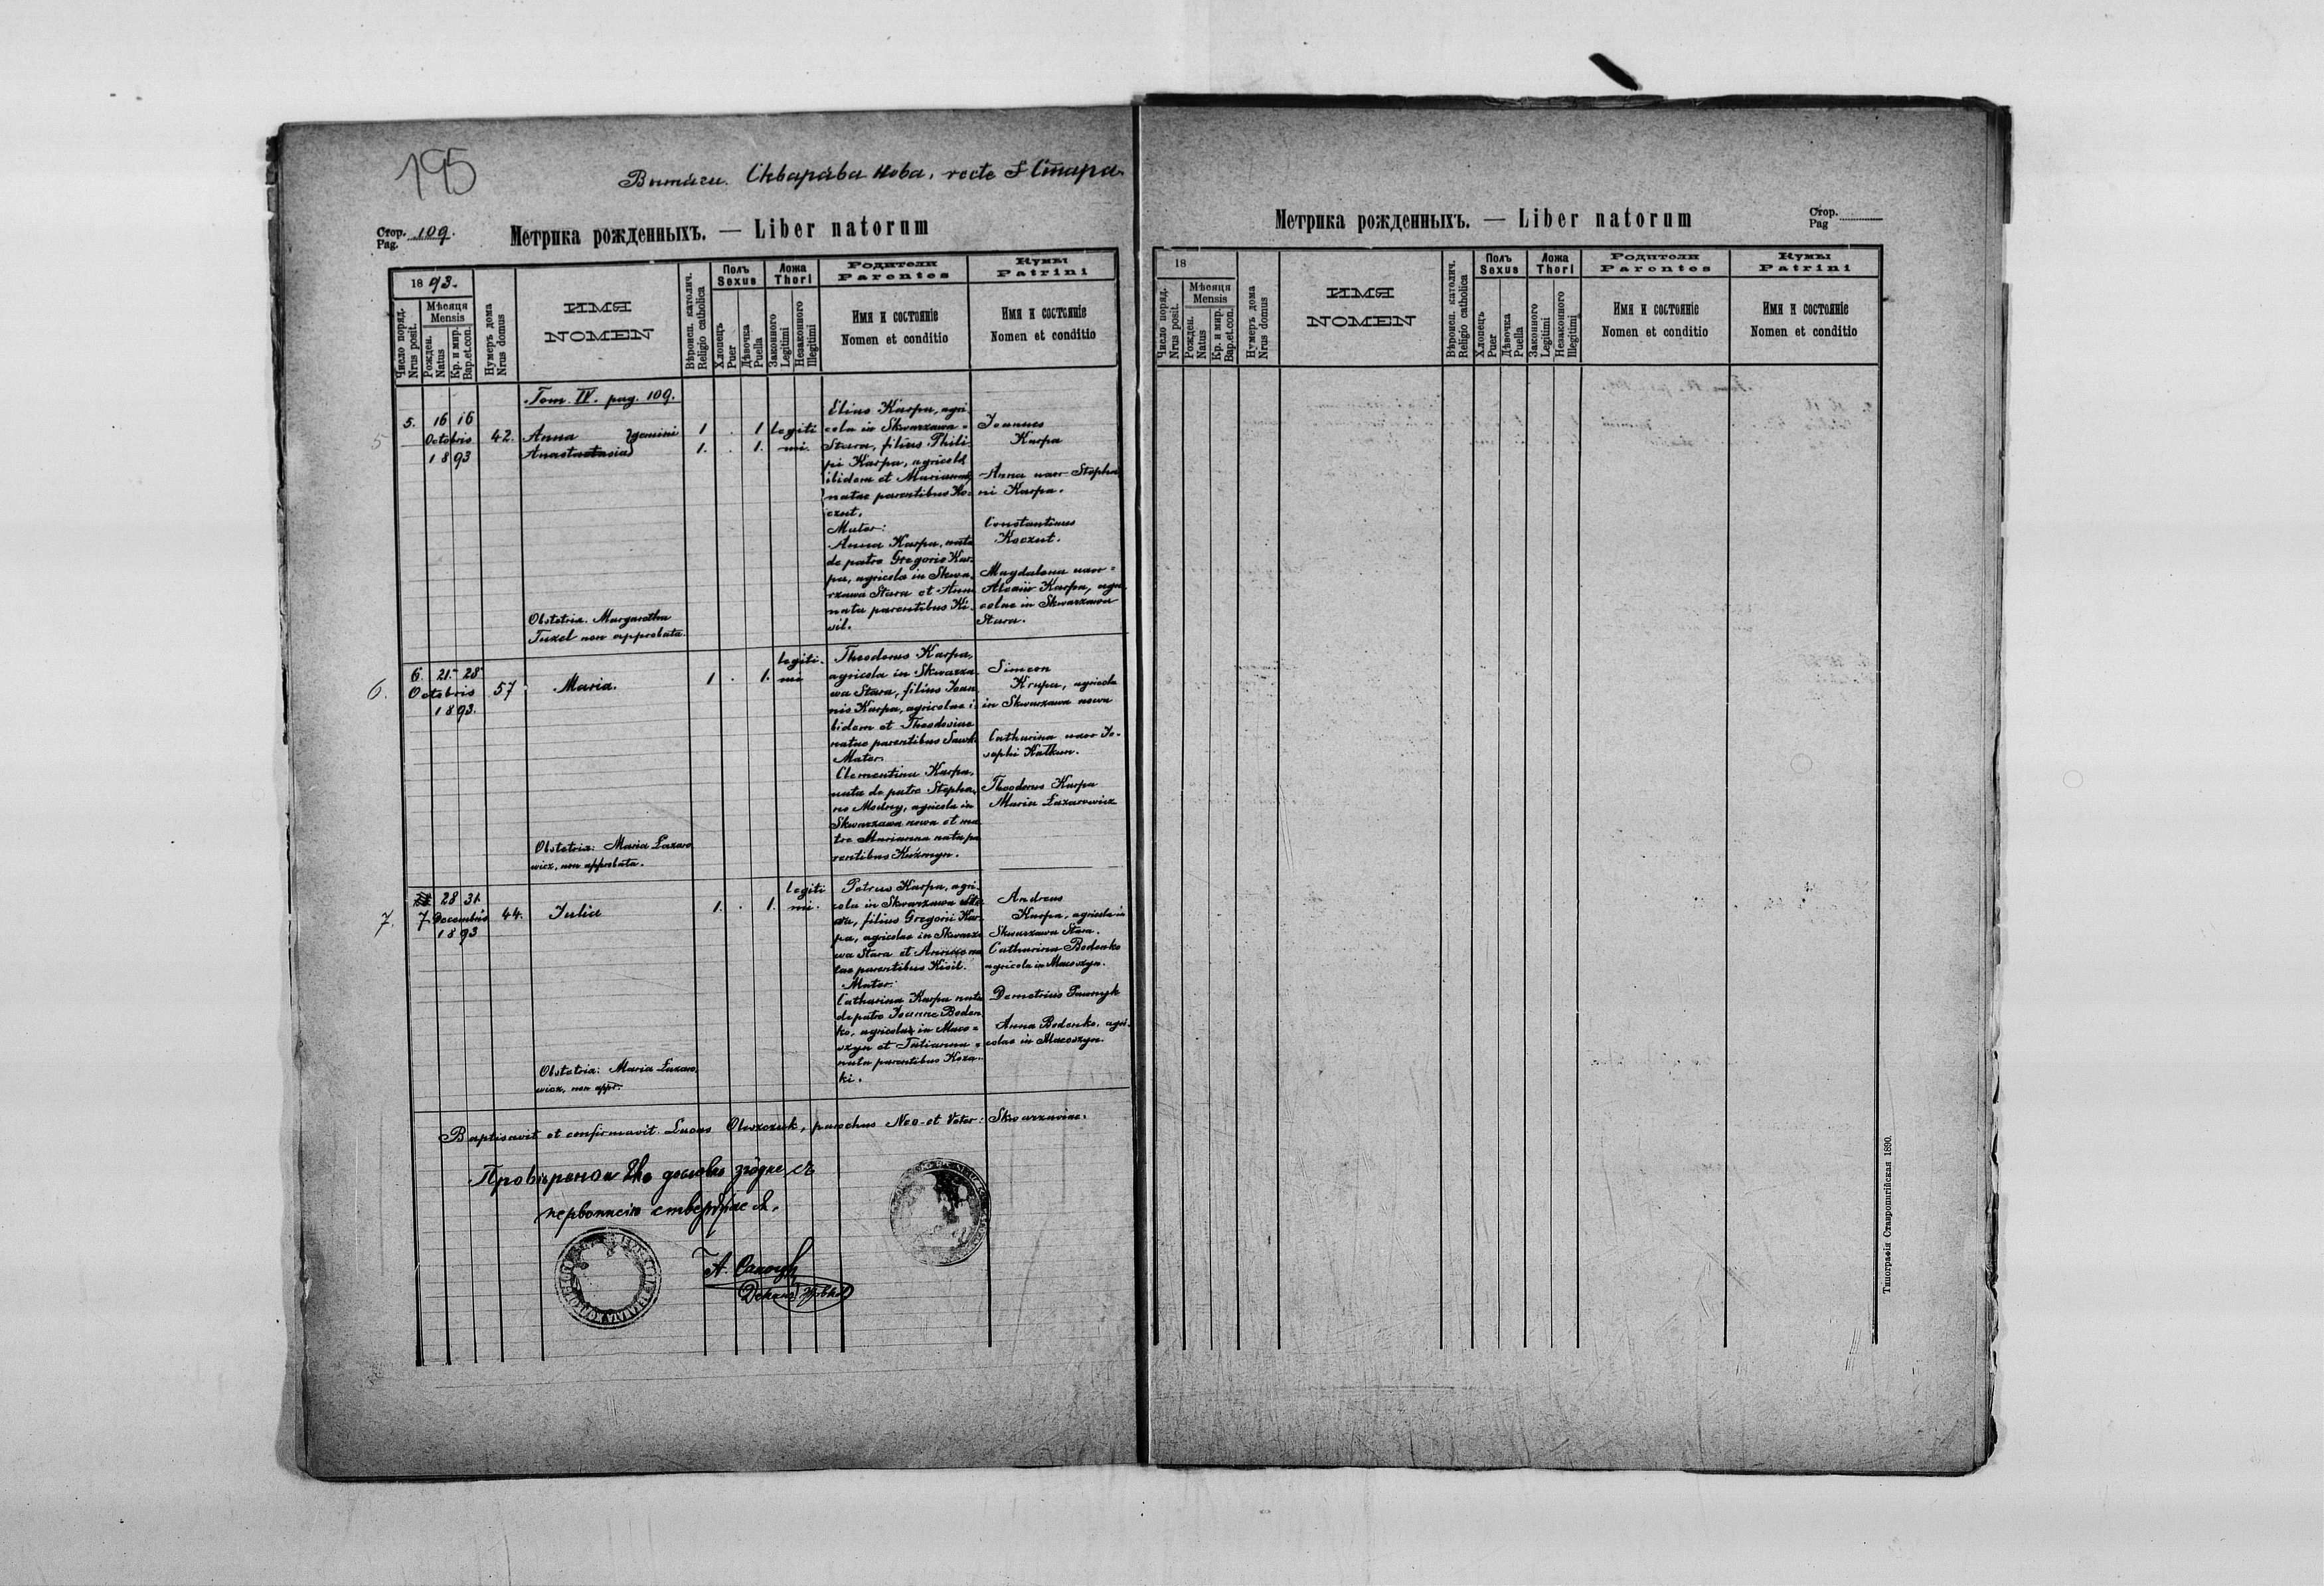 195
Витяги. Скварява нова, recte S Стара
Стор. 109.
Pag.
Метрика рожденныхъ. — Liber natorum
1893.
Число поряд.
Nrus posit.
Мѣсяця
Mensis
Рожден.
Natus
Кр. и мир.
Bap.et.con.
Нумеръ дома
Nrus domus
ИМЯ
NOMEN
Вѣроисп. католич.
Religio catholica
Полъ
Sexus
Хлопецъ
Puer
Дѣвочка
Puella
Ложа
Thori
Законного
Legitimi
Незаконного
Illegitimi
Родители
Parentes
Имя и состоянiе
Nomen et conditio
Кумы
Patrini
Имя и состоянiе
Nomen et conditio
Tom. IV. pag. 109.
5
5. 16 16
Octobris
1893
42.
Anna gemini
Anastastasia
1 . 1 legiti
1. . 1. mi.
Elias Karpa, agri
cola in Skwarzawa
Stara, filius Phili
pi Karpa, agricola
ibidem et Marianna
natae parentibus Ko
czut.
Mater:
Anna Karpa, nata
de patre Gregorio Kar
pa, agricola in Skwa
rzawa Stara et Anna
nata parentibus Ki
sil.
Joannes
Karpa
Anna uxor Stepha
ni Karpa.
Constantinus
Koczut.
Magdalena uxor
Alexii Karpa, agri
colae in Skwarzawa
Stara.
Obstetrix. Margaretha
Tuzel non approbata.
6.
6. 21. 28
Octobris
1893.
57
Maria.
1 . 1. legiti
mi
Theodorus Karpa,
agricola in Skwarza
wa Stara, filius Joan
nis Karpa, agricolae i
bidem et Theodosiae
natae parentibus Sawk
Mater.
Clementina Karpa,
nata de patre Stepha
no Modny, agricola in
Skwarzawa nowa et ma
tre Marianna nata pa
rentibus Kuźmyn.
Simeon
Krupa, agricola
in Skwarzawa nowa
Catharina uxor Jo-
sephi Kalkun.
Theodorus Karpa
Maria Lazarowicz
Obstetrix: Maria Lazaro
wicz, non approbata.
7.
7. 28 31.
Decembris
1893
44.
Julia
1. . 1. legiti
mi.
Petrus Karpa, agri
cola in Skwarzawa Sta
ra, filius Gregorii Kar
pa, agricolae in Skwarza
wa Stara et Annae na
tae parentibus Kisil.
Mater:
Catharina Karpa nata
de patre Joanne Boden
ko, agricola in Maco
szyn et Tatianna
nata parentibus Koza
ki.
Andreas
Karpa, agricola in
Skwarzawa Stara.
Catharina Bodenko
agricola in Macoszyn.
Demetrius
Anna Bodenko, agri
colae in Macoszyn.
Obstetrix: Maria Lazaro
wicz, non appr.
Baptisavit et confirmavit Lucas Olwszczuk, parochus Neo- et Veter: Skwarzaviae.
дословно згôдне съ
первописію стверджае ся.
А.
Деканъ
Метрика рожденныхъ. — Liber natorum
Стор.
Pag
18
Число поряд.
Nrus posit.
Мѣсяця
Mensis
Рожден.
Natus
Кр. и мир.
Bap.et.con.
Нумеръ дома
Nrus domus
ИМЯ
NOMEN
Вѣроисп. католич.
Religio catholica
Полъ
Sexus
Хлопецъ
Puer
Дѣвочка
Puella
Ложа
Thori
Законного
Legitimi
Незаконного
Illegitimi
Родители
Parentes
Имя и состоянiе
Nomen et conditio
Кумы
Patrini
Имя и состоянiе
Nomen et conditio
Типографія Ставропигійская 1890.